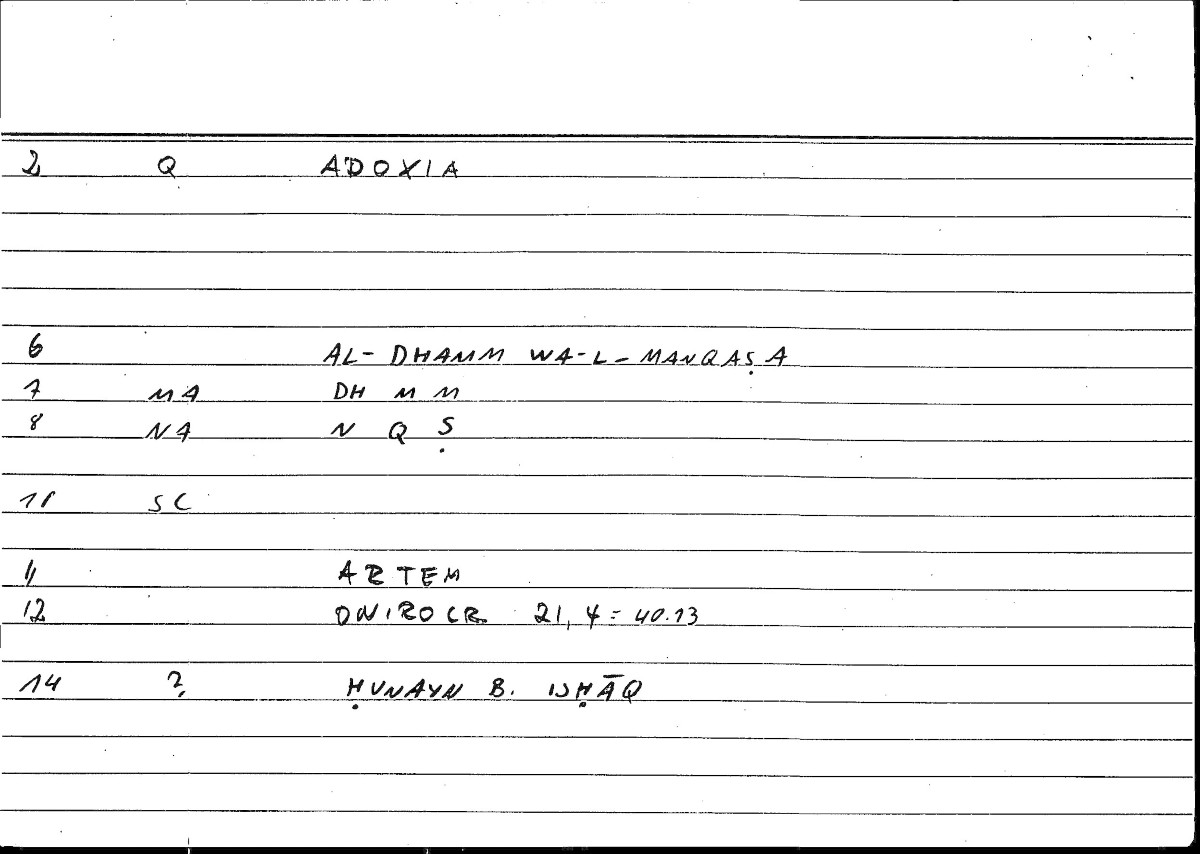 2 Q ADOXIA
6 AL-DHAMM WA-L-MANQAṢA
7 MA DH M M
8 NA N Q Ṣ
10 SC
11 ARTEM
12 ONIROCR. 21, 4 = 40.13
14 ? ḤUNAYN B. ISḤĀQ